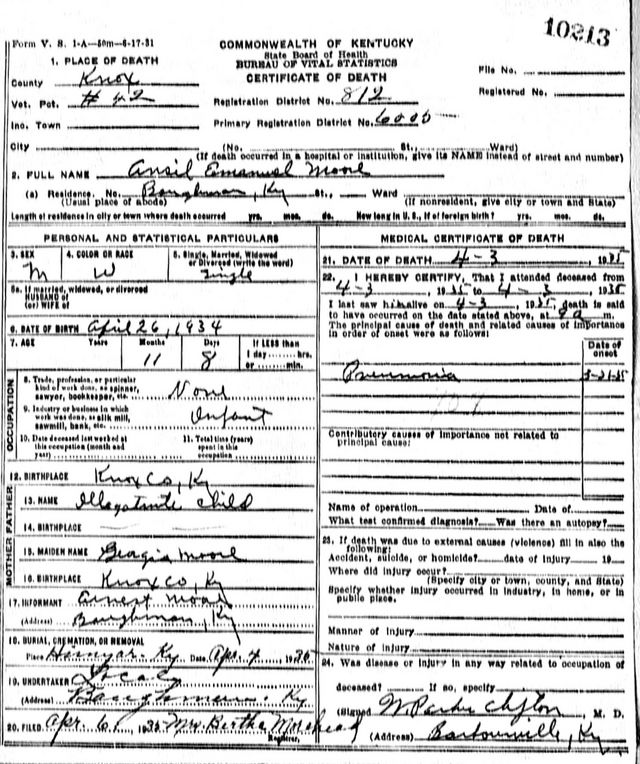 10213
Form V. S. 1-A—50m—6-17-31
COMMONWEALTH OF KENTUCKY
State Board of Health
BUREAU OF VITAL STATISTICS
CERTIFICATE OF DEATH
1. PLACE OF DEATH
County Knox
Vot. Pct. # 42
Inc. Town
City
File No.
Registered No.
Registration District No. 812
Primary Registration District No. 6005
(No. St., Ward)
(If death occurred in a hospital or institution, give its NAME instead of street and number)
2. FULL NAME Ansil Emanuel Moore
(a) Residence. No. Baughman, Ky St., Ward
(Usual place of abode) (If nonresident, give city or town and State)
Length of residence in city or town where death occurred yrs. mos. ds. How long in U. S., if of foreign birth? yrs. mos. ds.
PERSONAL AND STATISTICAL PARTICULARS
3. SEX M
4. COLOR OR RACE W
5. Single, Married, Widowed or Divorced (write the word) Single
5a. If married, widowed, or divorced
HUSBAND of
(or) WIFE of
6. DATE OF BIRTH April 26, 1934
7. AGE Years Months 11 Days 8
If LESS than
1 day hrs.
or min.
OCCUPATION
8. Trade, profession, or particular
kind of work done, as spinner,
sawyer, bookkeeper, etc. None
9. Industry or business in which
work was done, as silk mill,
sawmill, bank, etc. Infant
10. Date deceased last worked at
this occupation (month and
year)
11. Total time (years)
spent in this
occupation
12. BIRTHPLACE Knox Co, Ky
FATHER
13. NAME Illegotimte Child
14. BIRTHPLACE
MOTHER
15. MAIDEN NAME Georgia Moore
16. BIRTHPLACE Knox co, Ky
17. INFORMANT Ernest Moore
(Address) Baughman, Ky
18. BURIAL, CREMATION, OR REMOVAL
Place Hinyar, Ky Date Apr. 4 1935
19. UNDERTAKER Local
(Address) Baughman Ky
20. FILED Apr 6, 1935 Mrs Bertha Morehead
Registrar.
MEDICAL CERTIFICATE OF DEATH
21. DATE OF DEATH 4-3, 1935
22. I HEREBY CERTIFY, That I attended deceased from
4-3, 1935 to 4-3, 1935
I last saw him alive on 4-3, 1935, death is said
to have occurred on the date stated above, at 9 a m.
The principal cause of death and related causes of importance
in order of onset were as follows:
Date of
onset
Pneumonia 3-21-35
107
Contributory causes of importance not related to
principal cause:
Name of operation Date of
What test confirmed diagnosis? Was there an autopsy?
23. If death was due to external causes (violence) fill in also the
following:
Accident, suicide, or homicide? date of injury 19
Where did injury occur?
(Specify city or town, county, and State)
Specify whether injury occurred in industry, in home, or in
public place.
Manner of injury
Nature of injury
24. Was disease or injury in any way related to occupation of
deceased? If so, specify
(Signed W Parker Clifton, M. D.
(Address) Barbourville, Ky